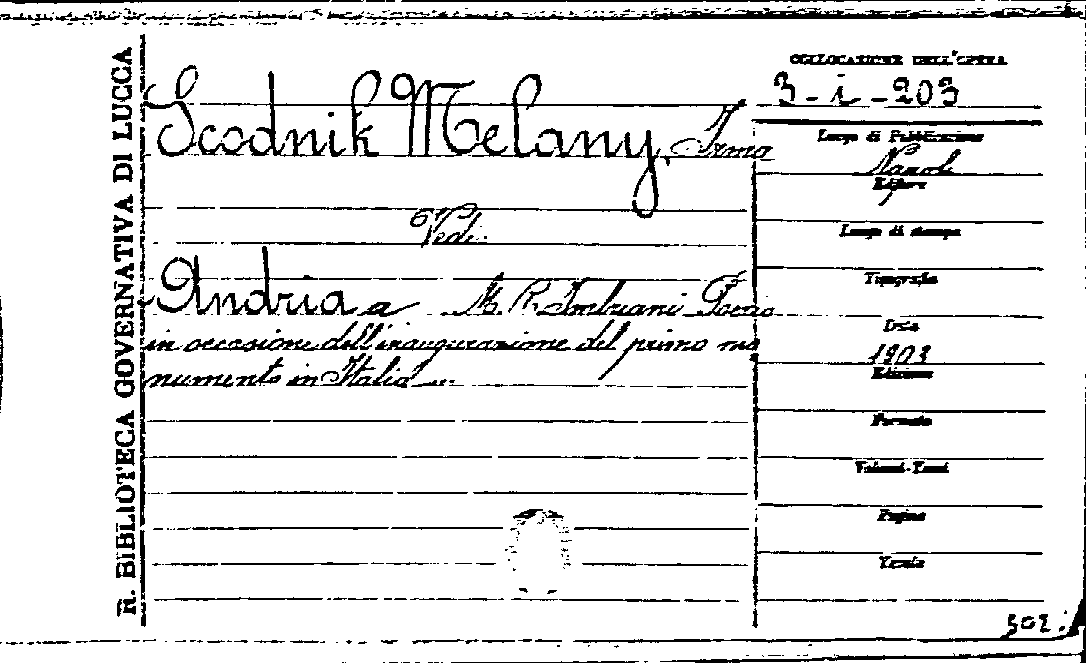 R. BIBLIOTECA GOVERNATIVA DI LUCCA
Scodnik Melany, Irma
Vedi:
Andria a M. R. Imbriani Poerio
in occasione dell'inaugurazione del primo mo
numento in Italia ...
COLLOCAZIONE DELL'OPERA
3-i-203
Luogo di Pubblicazione
Napoli
Editore
Luogo di stampa
Tipografia
Data
1903
Edizione
Formato
Volumi-Tomi
Pagine
Tavole